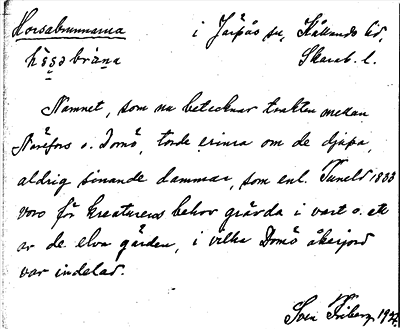 Horsabrunnarna i Järpås sn, Kållands hd,
hȯsȧbrȧna Skarab. l.
Namnet, som nu betecknar trakten mellan
Närefors o. Domö, torde erinra om de djupa,
aldrig sinande dammar, som enl. Tuneld 1833
voro för kreaturens behov grävda i vart o. ett
av de elva gärden, i vilka Domö åkerjord
var indelad.
Sven Friberg